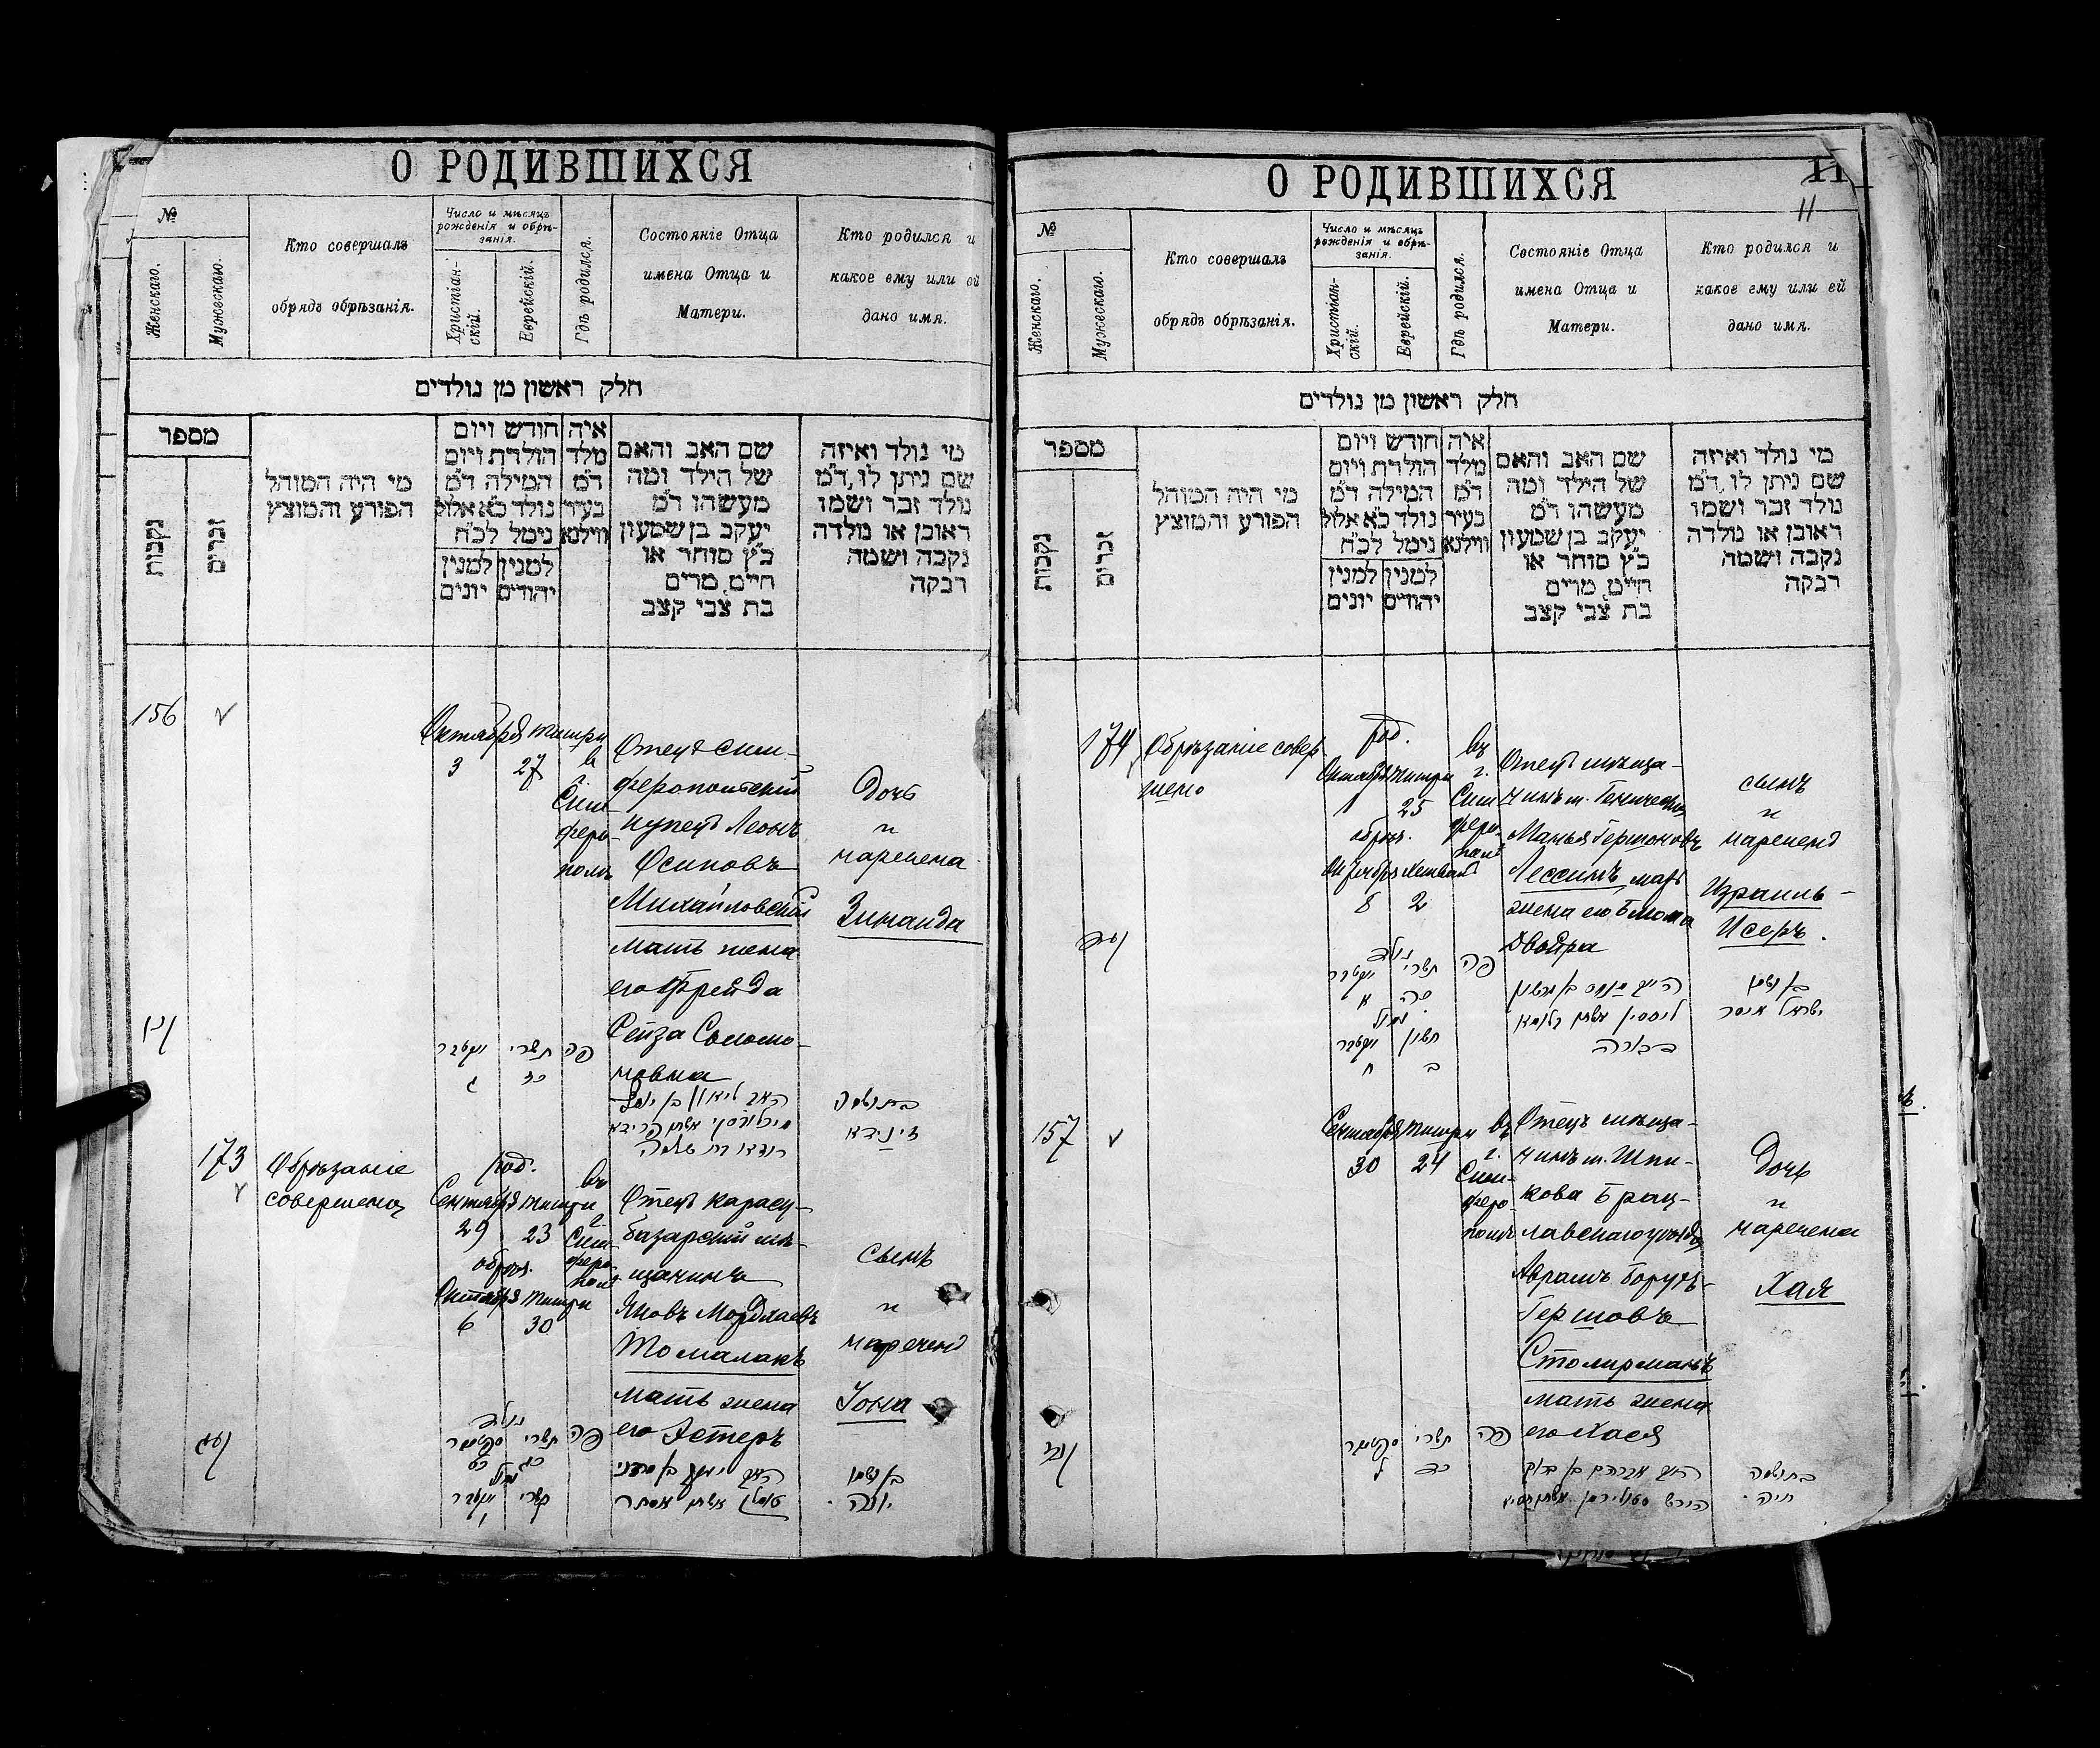 О РОДИВШИХСЯ
№
Женскаго.
Мужескаго.
Кто совершалъ
обрядъ обрѣзанія.
Число и мѣсяцъ
рожденія и обрѣ-
занія.
Христіан-
скій.
Еврейскій.
Гдѣ родился.
Состояніе Отца
имена Отца и
Матери.
Кто родился и
какое ему или ей
дано имя.
חלק ראשון מן נולדים
מספר
נקבות
זכרים
מי היה המוהל
הפורע והמוצץ
חודש ויום
הולדת ויום
המילה ד״מ
נולד כ״א אלול
נימל לכ״ח
למנין למנין
יהודים יונים
איה
מלד
ד״מ
בעיר
ווילנא
שם האב והאם
של הילד ומה
מעשהו ד״מ
יעקב בן שמעון
כ״ץ סוחר או
חייט, מרים
בת צבי קצב
מי נולד ואיזה
שם ניתן לו, ד״מ
נולד זכר ושמו
ראובן או נולדה
נקבה ושמה
רבקה
156
Октября Тишри
3 27
в
г.
Сим
феро-
полѣ
Отецъ Сим-
феропольскій
купецъ Леонъ
Осиповъ
Михайловскій
мать жена
его Фрейда
Рейза Соломо-
новна
Дочь
и
наречена
Зинаида
תשרי
פה
173
Обрѣзаніе
совершено
род.
Сентября Тишри
29 23
обрѣз.
Октября Тишри
6 30
въ
г.
Сим-
феро
пол
Отецъ карасу-
базарскій мѣ-
щанинъ
Яковъ Мордхаевъ
Томалакъ
мать жена
его Эстеръ
сынъ
и
нареченъ
Іона
תשרי
פה
יונה
О РОДИВШИХСЯ
11
11
№
Женскаго.
Мужескаго.
Кто совершалъ
обрядъ обрѣзанія.
Число и мѣсяцъ
рожденія и обрѣ-
занія.
Христіан-
скій.
Еврейскій.
Гдѣ родился.
Состояніе Отца
имена Отца и
Матери.
Кто родился и
какое ему или ей
дано имя.
חלק ראשון מן נולדים
מספר
נקבות
זכרים
מי היה המוהל
הפורע והמוצץ
חודש ויום
הולדת ויום
המילה ד״מ
נולד כ״א אלול
נימל לכ״ח
למנין למנין
יהודים יונים
איה
מלד
ד״מ
בעיר
ווילנא
שם האב והאם
של הילד ומה
מעשהו ד״מ
יעקב בן שמעון
כ״ץ סוחר או
חייט, מרים
בת צבי קצב
מי נולד ואיזה
שם ניתן לו, ד״מ
נולד זכר ושמו
ראובן או נולדה
נקבה ושמה
רבקה
174
Обрѣзаніе совер
шено
род.
Октября Тишри
1 25
обрѣз.
Октября Хешван
8 2
въ
г.
Сим
феро
пол
Отецъ мѣща-
нинъ м. Геническъ
Манья Гершоновъ
Лессинъ, мать
жена его Блюма
Двойра
сынъ
и
нареченъ
Израиль-
Исеръ.
תשרי
פה
ישראל איסר
157
Сентября Тишри
30 24
въ
г.
Сим-
феро-
полѣ
Отецъ мѣща-
нинъ м. Шпи-
кова Брац-
лавскаго уѣзда
Аврамъ Борухъ-
Гершовъ
Столирманъ
мать жена
его Хася
Дочь
и
наречена
Хая
תשרי
פה
חיה